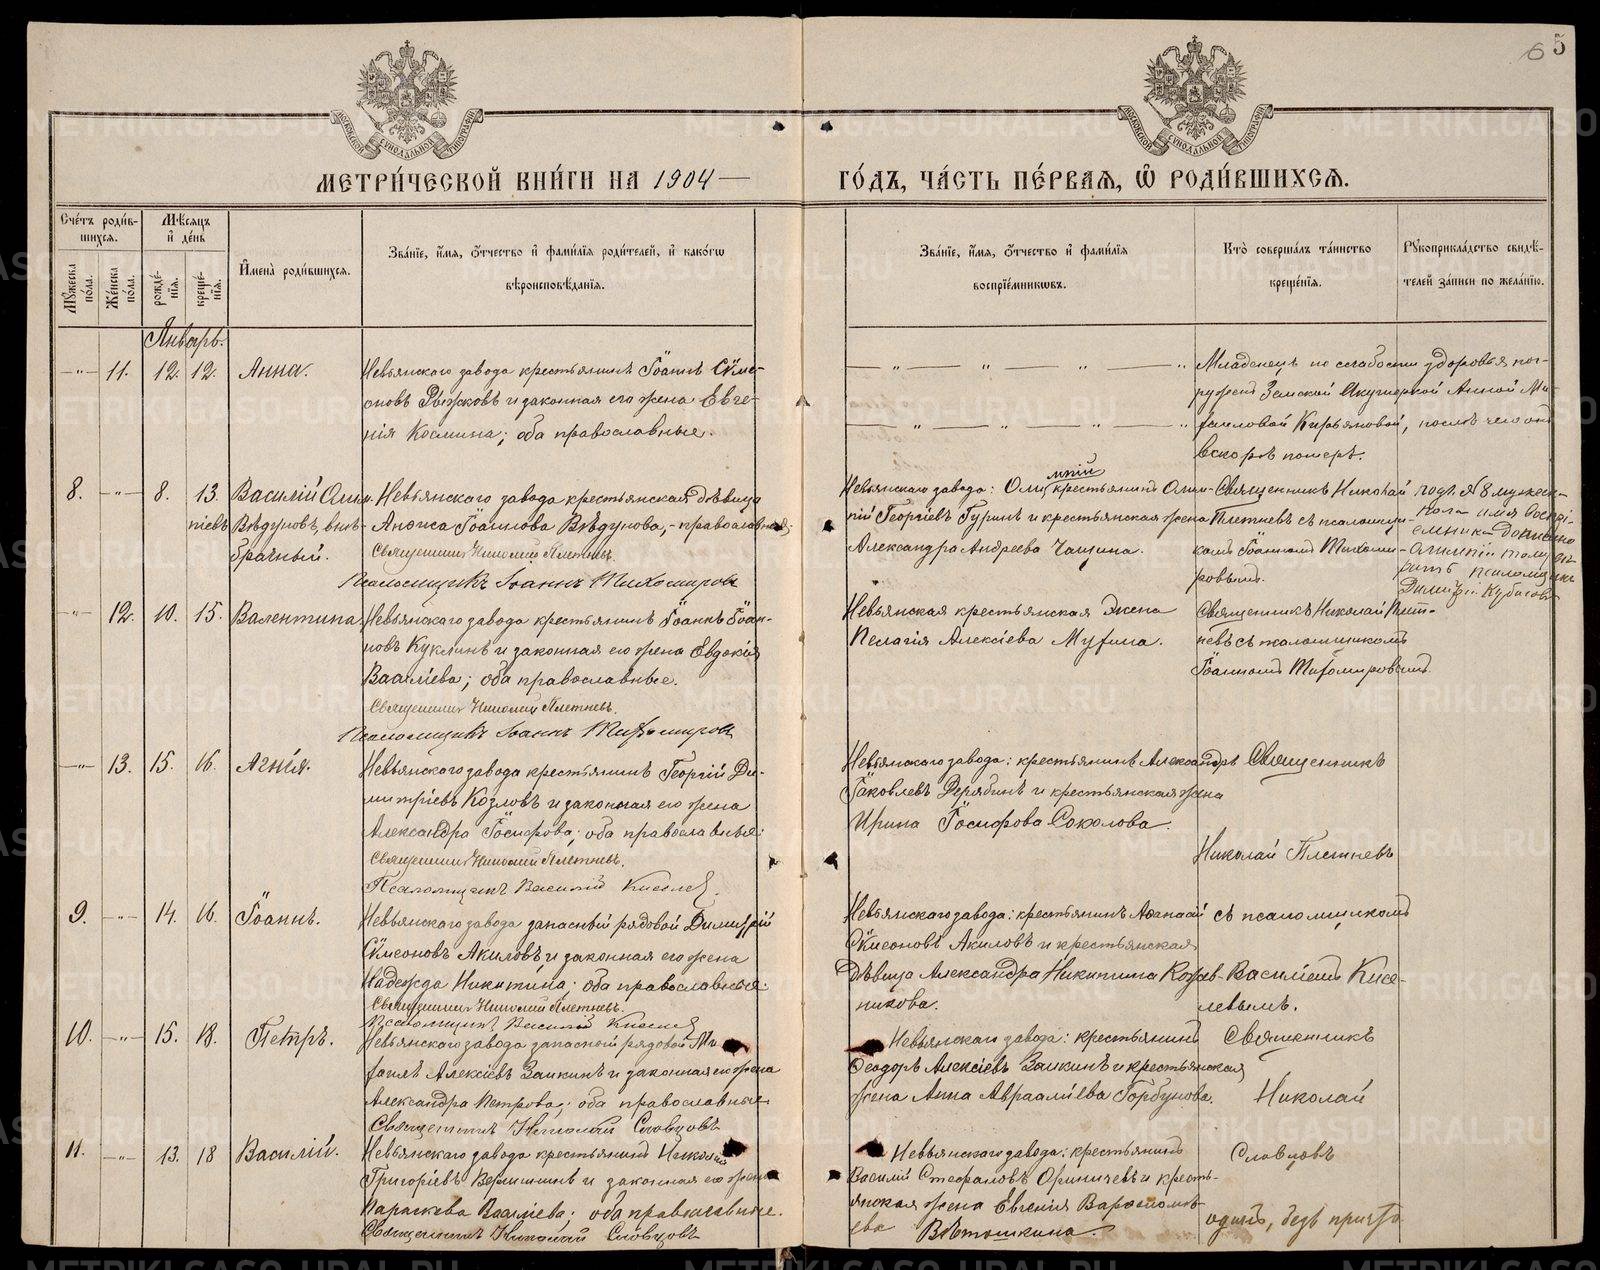 6 5
МОСКОВСКОЙ СѴНОДАЛЬНОЙ ТИПОГРАФІИ
МОСКОВСКОЙ СѴНОДАЛЬНОЙ ТИПОГРАФІИ
МЕТРИ́ЧЕСКОЙ КНИ́ГИ НА 1904 —
ГО́ДЪ, ЧА́СТЬ ПЕ́РВАѦ, Ѡ҆ РОДИ́ВШИХСѦ.
Сче́тъ роди́в-
шихсѧ.
Мѣ́сѧцъ
и҆ де́нь
Мꙋ́жеска
по́ла.
Же́нска
по́ла.
рожде́-
нїѧ.
креще́-
нїѧ.
И҆мена̀ роди́вшихсѧ.
Зва́нїе, и҆́мѧ, ѻ҆́тчество и҆ фами́лїѧ роди́телей, и҆ како́гѡ
вѣроисповѣ́данїѧ.
Зва́нїе, и҆́мѧ, ѻ҆́тчество и҆ фами́лїѧ
воспрїе́мникѡвъ.
Кто̀ соверша́лъ та́инство
креще́нїѧ.
Рꙋкоприкла́дство свидѣ́-
телей за́писи по жела́нїю.
Январь.
—"— 11. 12. 12. Анна.
Невьянскаго завода крестьянинъ Іоаннъ Сѵме-
оновъ Рыжковъ и законная его жена Евге-
нія Космина; оба православные.
Младенецъ по слабости здоровья пог-
руженъ Земской Акушеркой Анной Ми-
хаиловой Кирьяновой, послѣ чего онъ
вскорѣ померъ.
8. —"— 8. 13. Василій Олим-
піевъ Вѣдуновъ, внѣ-
брачный.
Невьянскаго завода крестьянская дѣвица
Анѳиса Іоаннова Вѣдунова, православная;
Священникъ Николай Плетневъ.
Псаломщикъ Іоаннъ Тихомировъ
мпій
Невьянскаго завода: крестьянинъ Олим-
пій Георгіевъ Гуринъ и крестьянская жена
Александра Андреева Чащина.
Священникъ Николай
Плетневъ съ псаломщи-
комъ Іоанномъ Тихоми-
ровымъ.
Подъ № 8 мужеск-
пола имя воспрі-
емника дописано
Олимпій
псаломщикъ
Димитрій
—"— 12. 10. 15. Валентина
Невьянскаго завода крестьянинъ Іоаннъ Іоан-
новъ Куклинъ и законная его жена Евдокія
Василіева; оба православные.
Священникъ Николай Плетневъ.
Псаломщикъ Іоаннъ Тихомировъ
Невьянская крестьянская жена
Пелагія Алексіева Мухина.
Священникъ Николай Плет-
невъ съ псаломщикомъ
Іоанномъ Тихомировымъ.
—"— 13. 15. 16. Агнія.
Невьянскаго завода крестьянинъ Георгій Ди-
митріевъ Козловъ и законная его жена
Александра Іосифова; оба православные.
Священникъ Николай Плетневъ.
Псаломщикъ Василій Киселев.
Невьянскаго завода: крестьянинъ Александръ
Іаковлевъ Дерябинъ и крестьянская жена
Ирина Іосифова Соколова.
Священникъ
Николай Плетневъ
9. —"— 14. 16. Іоаннъ.
Невьянскаго завода запасный рядовой Димитрій
Сѵмеоновъ Акиловъ и законная его жена
Надежда Никитина; оба православные.
Священникъ Николай Плетневъ.
Псаломщикъ Василій Киселев
Невьянскаго завода: крестьянинъ Аѳанасій
Сѵмеоновъ Акиловъ и крестьянская
дѣвица Александра Никитина Кожев-
никова.
съ псаломщикомъ
Василіемъ Кисе-
левымъ.
10. —"— 15. 18. Петръ.
Невьянскаго завода запасной рядовой Ми-
хаилъ Алексіевъ Заикинъ и законная его жена
Александра Петрова; оба православные
Священникъ Николай Словцовъ
Невьянскаго завода: крестьянинъ
Ѳеодоръ Алексіевъ Заикинъ и крестьянская
жена Анна Авраамиева Горбунова.
Священникъ
Николай
11. —"— 13. 18 Василій.
Невьянскаго завода крестьянинъ Николай
Григоріевъ Вершининъ и законная его жена
Параскева Василіева; оба православные.
Священникъ Николай Словцовъ
Невьянскаго завода: крестьянинъ
Василій Стефановъ и кресть-
янская жена Евгенія Варѳоломѣ-
ева Вѣтошкина.
Словцовъ
одинъ, безъ причта
METRIKI.GASO-URAL.RU